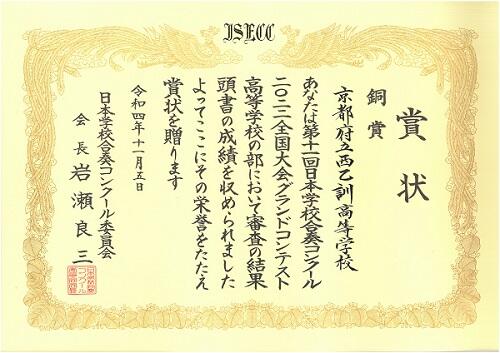 JSECC
賞状
銅賞
京都府立西乙訓高等学校
あなたは第十一回日本学校合奏コンクール
二〇二二全国大会グランドコンテスト
高等学校の部において審査の結果
頭書の成績を収められました
よってここにその栄誉をたたえ
賞状を贈ります
令和四年十一月五日
日本学校合奏コンクール委員会
会長 岩瀬良三